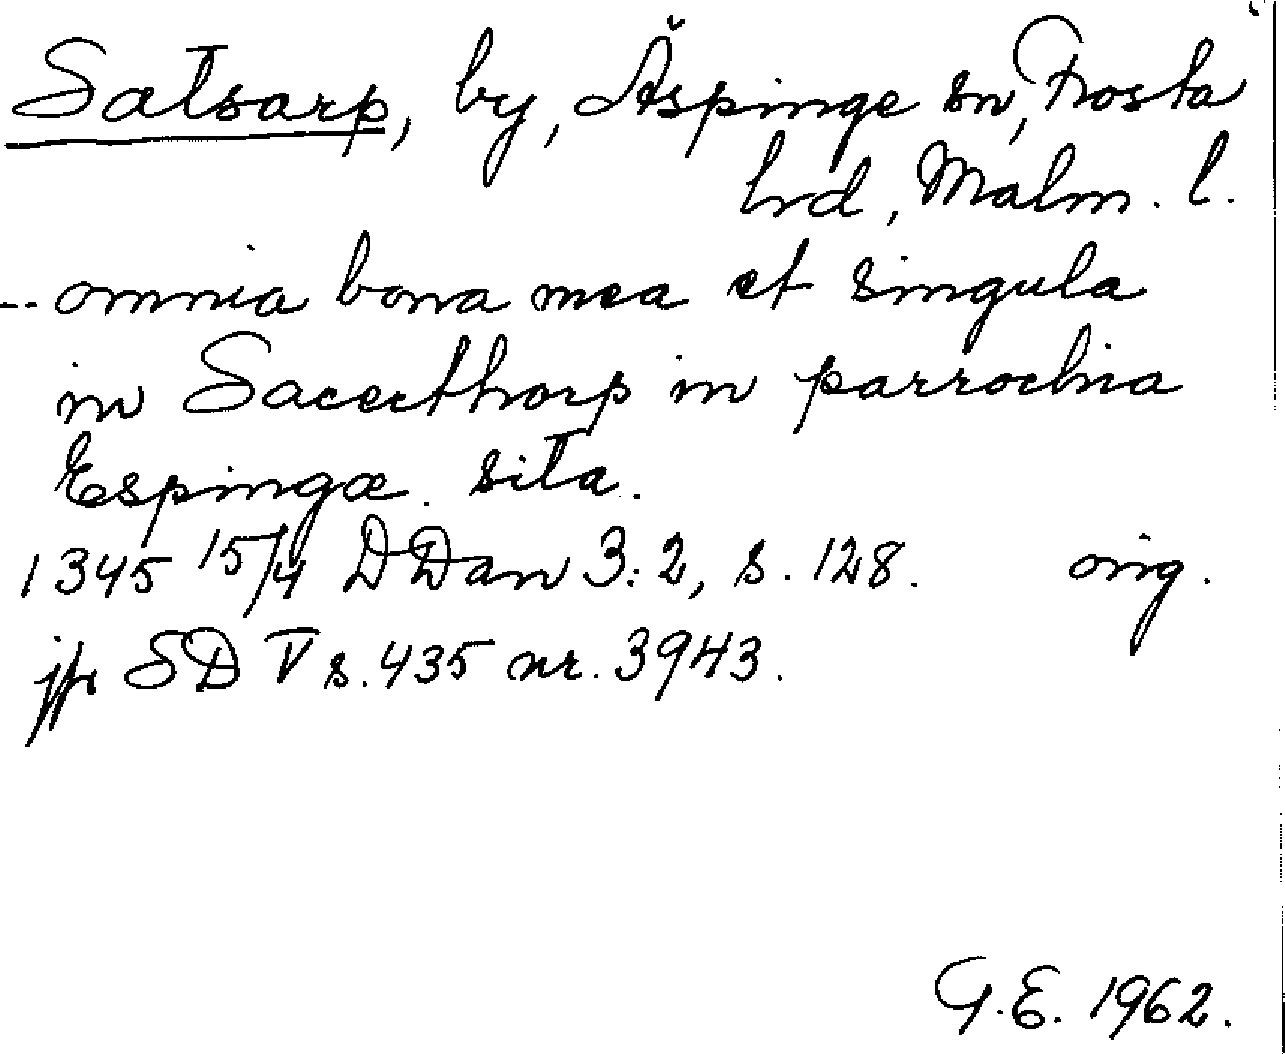 Satsarp, by, Äspinge sn, Frosta
hrd, Malm. l.
-- omnia bona mea et singula
in Sacecthorp in parrochia
Espingæ sita.
1345 15/4 DDan 3:2, s. 128. orig.
jfr SD V s. 435 nr. 3943.
G.E. 1962.